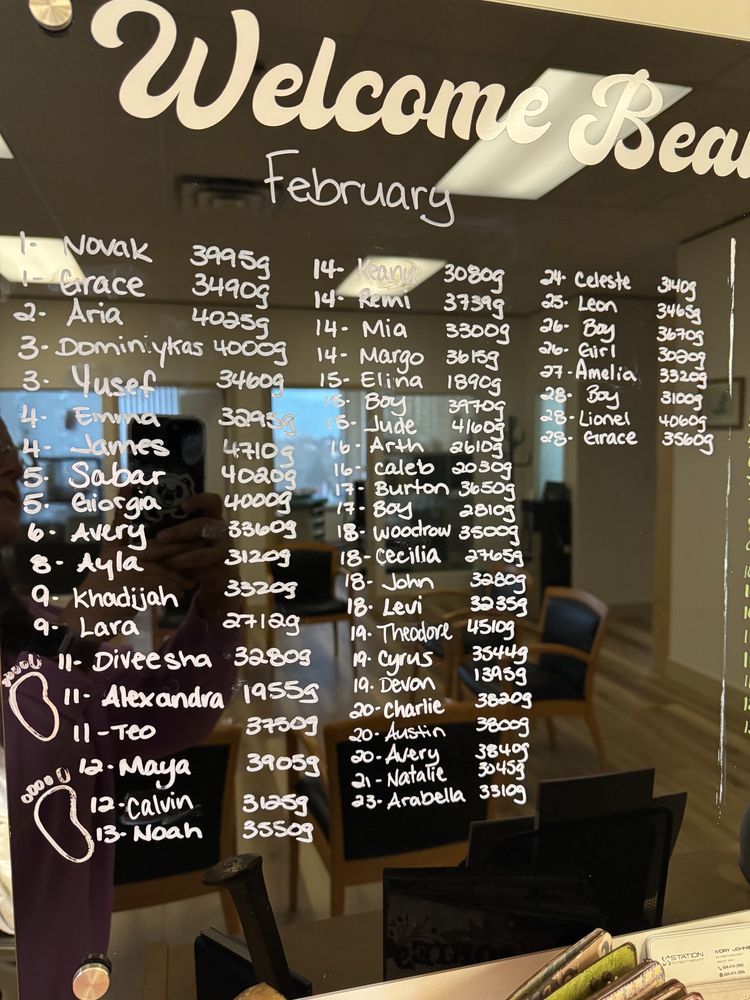 Welcome Bea
February
1- Novak 3995g
1- Grace 3490g
2- Aria 4025g
3- Dominiykas 4000g
3- Yusef 3460g
4- Emma 3295g
4- James 4710g
5- Sabar 4020g
5- Giorgia 4000g
6- Avery 3360g
8- Ayla 3120g
9- Khadijah 3320g
9- Lara 2712g
11- Diveesha 3280g
11- Alexandra 1955g
11- Teo 3750g
12- Maya 3905g
12- Calvin 3125g
13- Noah 3550g
14- 3080g
14- Remi 3739g
14- Mia 3300g
14- Margo 3615g
15- Elina 1890g
15- Boy 3970g
15- Jude 4160g
16- Arth 2610g
16- Caleb 2030g
17- Burton 3650g
17- Boy 2810g
18- Woodrow 3500g
18- Cecilia 2765g
18- John 3280g
18- Levi 3235g
19- Theodore 4510g
19- Cyrus 3544g
19- Devon 1395g
20- Charlie 3820g
20- Austin 3800g
20- Avery 3840g
21- Natalie 3045g
23- Arabella 3310g
24- Celeste 3140g
25- Leon 3465g
26- Boy 3670g
26- Girl 3020g
27- Amelia 3320g
28- Boy 3100g
28- Lionel 4060g
28- Grace 3560g
STATION